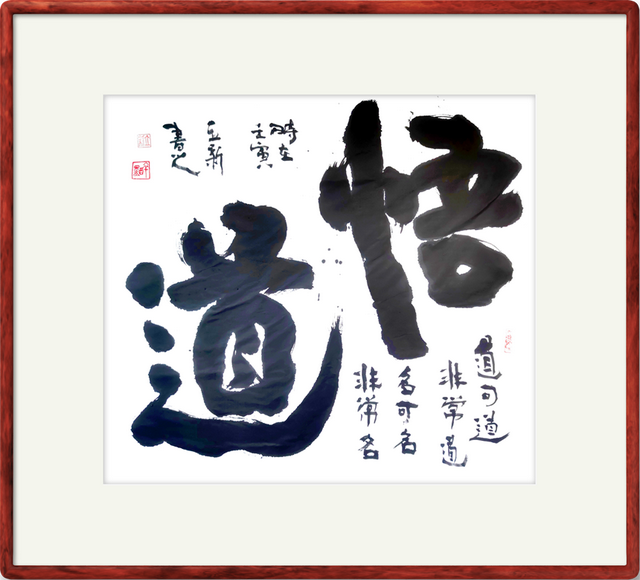 悟道
道可道
非常道
名可名
非常名
时在
壬寅
正新
書之